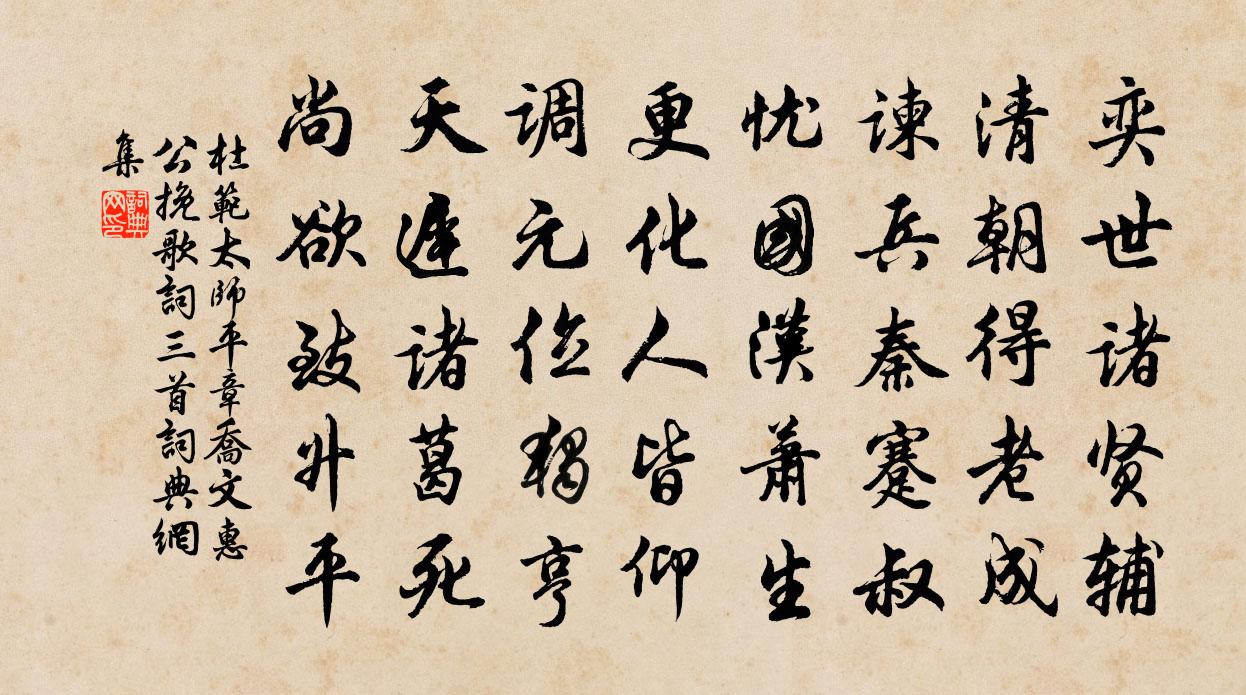 奕世诸贤辅
清朝得老成
谏兵秦蹇叔
忧國漢萧生
更化人皆仰
调元位独亨
天遅诸葛死
尚欲致升平
杜範太師平章喬文惠
公挽歌詞三首詞典網
集
詞典网印